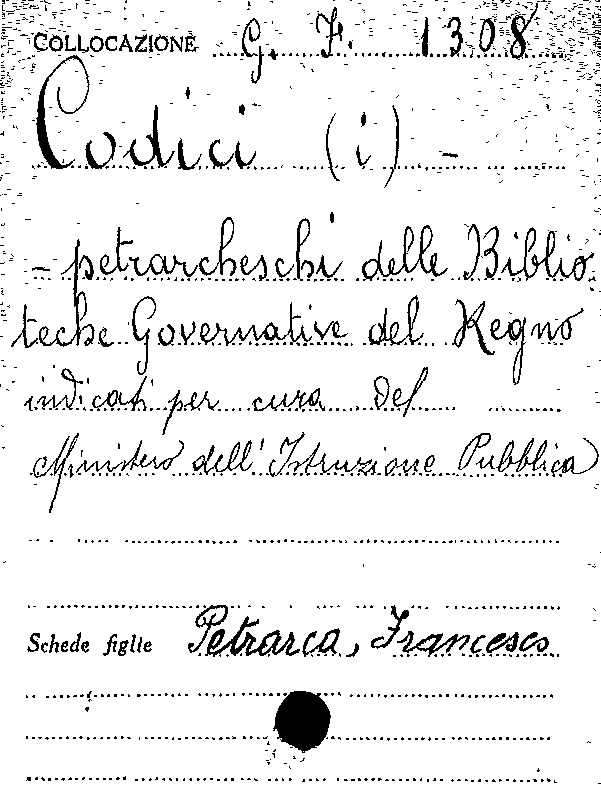 COLLOCAZIONE G. F. 1308
Codici (i) -
- petrarcheschi delle Biblio.
teche Governative del Regno
indicati per cura del
Ministero dell'Istruzione Pubblica
Schede figlie Petrarca, Francesco